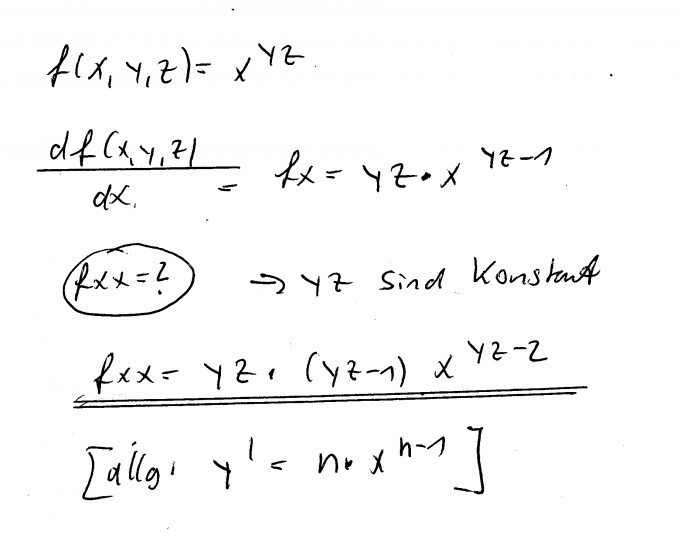 f(x, y, z) = x^{yz}
df(x, y, z)/dx. = fx = yz • x^{yz-1}
fxx = ? → yz sind Konstant
fxx = yz • (yz-1) x^{yz-2}
[allg. y' = n • x^{n-1}]